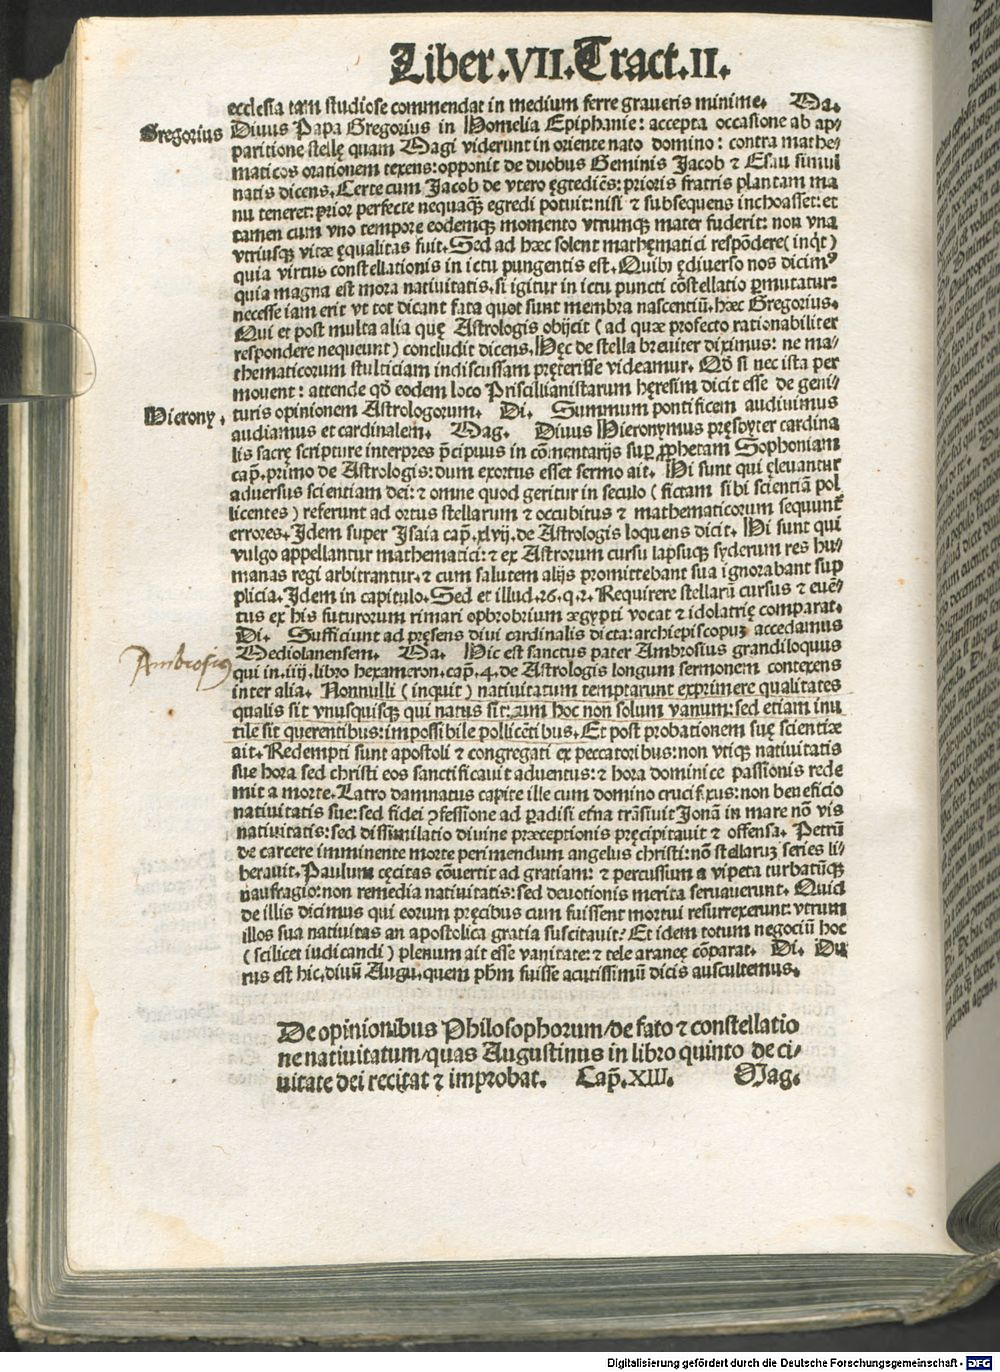 Liber.VII.Tract.II.
ecclesia tam studiose commendat in medium ferre graueris minime. Ma.
Gregorius Diuus Papa Gregorius in Homelia Epiphanie: accepta occasione ab ap⸗
paritione stellę quam Magi viderunt in oriente nato domino: contra mathe⸗
maticos orationem texens: opponit de duobus Geminis Jacob ⁊ Esau simul
natis dicens. Certe cum Jacob de vtero ęgrediēs: prioris fratris plantam ma
nu teneret: prior perfecte nequaꝗ̃ egredi potuit: nisi ⁊ subsequens inchoasset: et
tamen cum vno tempore eodemqꝫ momento vtrunqꝫ mater fuderit: non vna
vtriusqꝫ vitæ ęqualitas fuit. Sed ad hæc solent mathęmatici respōdere (inq̇t)
quia virtus constellationis in ictu pungentis est. Quibꝰ ędiuerso nos dicimꝰ
quia magna est mora natiuitatis. si igitur in ictu puncti cōstellatio ꝑmutatur:
necesse iam erit vt tot dicant fata quot sunt membra nascentiū. hæc Gregorius.
Qui et post multa alia quę Astrologis obijcit (ad quæ profecto rationabiliter
respondere nequeunt) concludit dicens. Hęc de stella breuiter diximus: ne ma⸗
thematicorum stulticiam indiscussam pręterisse videamur. Qđ si nec ista per
mouent: attende qđ eodem loco Priscillianistarum hęresim dicit esse de geni⸗
Hierony. turis opinionem Astrologorum. Di. Summum pontificem audiuimus
audiamus et cardinalem. Mag. Diuus Hieronymus pręsbyter cardina
lis sacrę scripture interpres p̄cipuus in cōmentarijs suꝑ ꝓphetam Sophoniam
cap̄. primo de Astrologis: dum exortus esset sermo ait. Hi sunt qui ęleuantur
aduersus scientiam dei: ⁊ omne quod geritur in seculo (fictam sibi scientiā pol
licentes) referunt ad ortus stellarum ⁊ occubitus ⁊ mathematicorum sequunt̄
errores. Idem super Isaia cap̄. xlvij. de Astrologis loquens dicit. Hi sunt qui
vulgo appellantur mathematici: ⁊ ex Astrorum cursu lapsuqꝫ syderum res hu⸗
manas regi arbitrantur. ⁊ cum salutem alijs promittebant sua ignorabant sup
plicia. Idem in capitulo. Sed et illud. 26. q. 2. Requirere stellarū cursus ⁊ euē⸗
tus ex his futurorum rimari opbrobrium ægypti vocat ⁊ idolatrię comparat.
Di. Sufficiunt ad pręsens diui cardinalis dicta: archiepiscopuꝫ accedamus
Ambrosius Mediolanensem. Ma. Hic est sanctus pater Ambrosius grandiloquus
qui in. iiij. libro hexameron. cap̄. 4. de Astrologis longum sermonem contexens
inter alia. Nonnulli (inquit) natiuitatum temptarunt exprimere qualitates
qualis sit vnusquisqꝫ qui natus sit: cum hoc non solum vanum: sed etiam inu
tile sit querentibus: impossibile pollicētibus. Et post probationem suę scientiæ
ait. Redempti sunt apostoli ⁊ congregati ex peccatoribus: non vtiqꝫ natiuitatis
sue hora sed christi eos sanctificauit aduentus: ⁊ hora dominice passionis rede
mit a morte. Latro damnatus capite ille cum domino crucifixus: non beneficio
natiuitatis sue: sed fidei ꝯfessione ad ꝑadisi etna trāsiuit Jonā in mare nō vis
natiuitatis: sed dissimilatio diuine præceptionis pręcipitauit ⁊ offensa. Petrū
de carcere imminente morte perimendum angelus christi: nō stellaruꝫ series li⸗
berauit. Paulum cęcitas cōuertit ad gratiam: ⁊ percussum a vipera turbatūqꝫ
naufragio: non remedia natiuitatis: sed deuotionis merita seruauerunt. Quid
de illis dicimus qui eorum pręcibus cum fuissent mortui resurrexerunt: vtrum
illos sua natiuitas an apostolica gratia suscitauit? Et idem totum negociū hoc
(scilicet iudicandi) plenum ait esse vanitate: ⁊ tele aranee cōparat. Di. Du
rus est hic. diuū Augu. quem pħm fuisse acutissimū dicis auscultemus.
De opinionibus Philosophorum/de fato ⁊ constellatio
ne natiuitatum/quas Augustinus in libro quinto de ci⸗
uitate dei recitat ⁊ improbat. Cap̄. XIII. Mag.
Digitalisierung gefördert durch die Deutsche Forschungsgemeinschaft - DFG